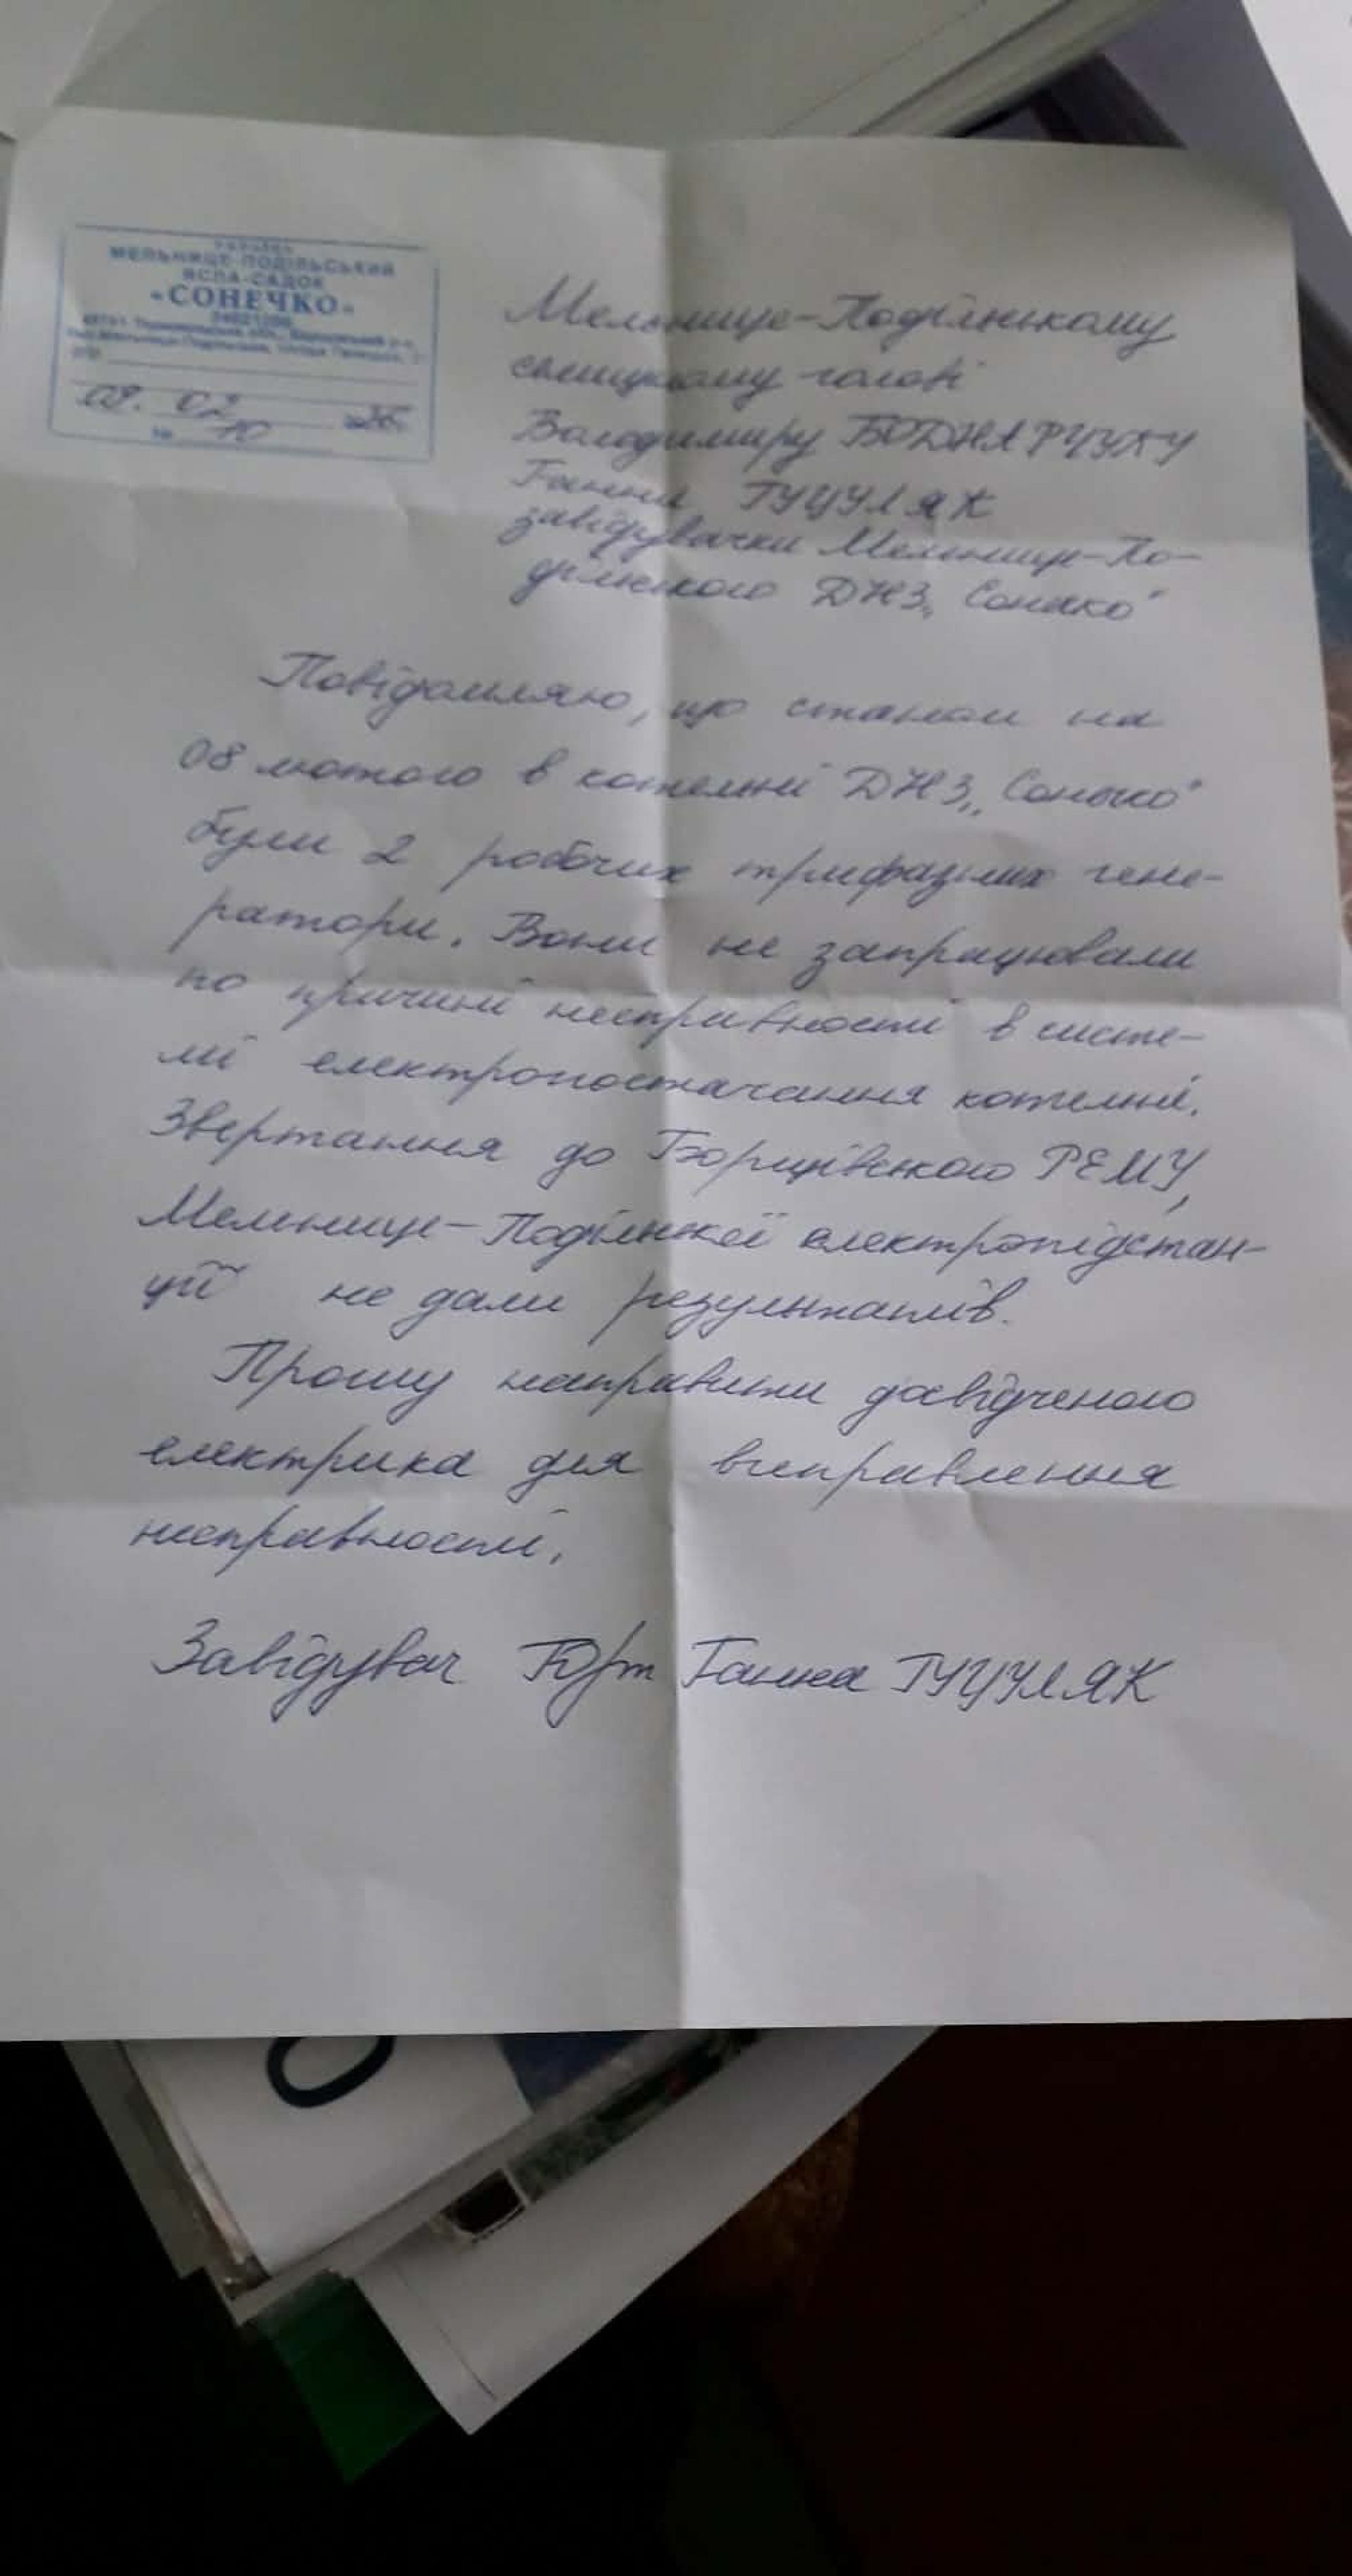 УКРАЇНА
МЕЛЬНИЦЕ-ПОДІЛЬСЬКИЙ
ЯСЛА-САДОК
«СОНЕЧКО»
08. 02
№ 10
Мельнице-Подільському
селищному голові
Володимиру БОДНАРЧУКУ
Ганни ГУЦУЛЯК
завідувачки Мельнице-По-
дільського ДНЗ „Сонечко"
Повідомляю, що станом на
08 лютого в котельні ДНЗ „Сонечко"
були 2 робочих трифазних гене-
ратори. Вони не запрацювали
по причині несправності в систе-
мі електропостачання котельні.
Звертання до Борщівського РЕМУ,
Мельнице-Подільської електропідстан-
ції не дали результатів.
Прошу направити досвідченого
електрика для виправлення
несправності.
Завідувач Ганна ГУЦУЛЯК